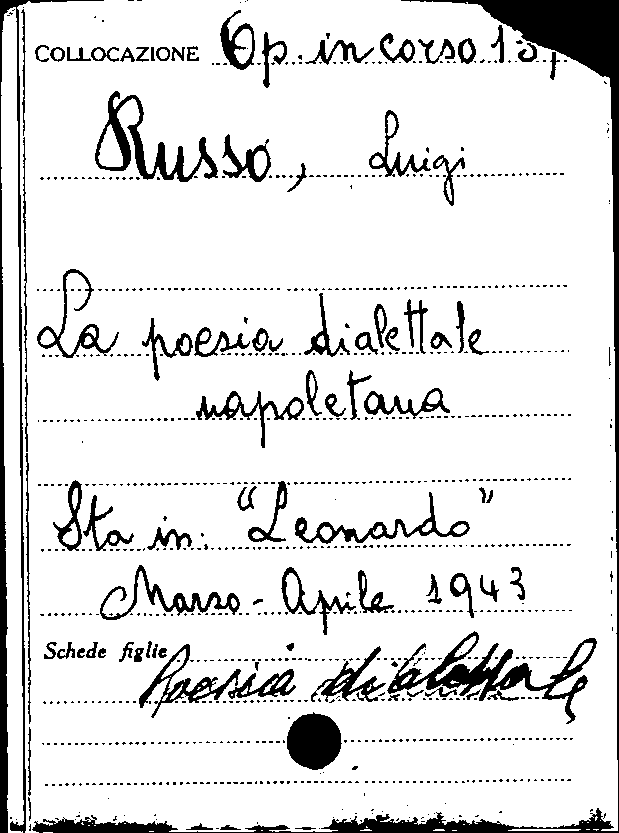 COLLOCAZIONE Op. in corso 13,
Russo, Luigi
La poesia dialettale
napoletana
Sta in: "Leonardo"
Marzo - Aprile 1943
Schede figlie Poesia dialettale